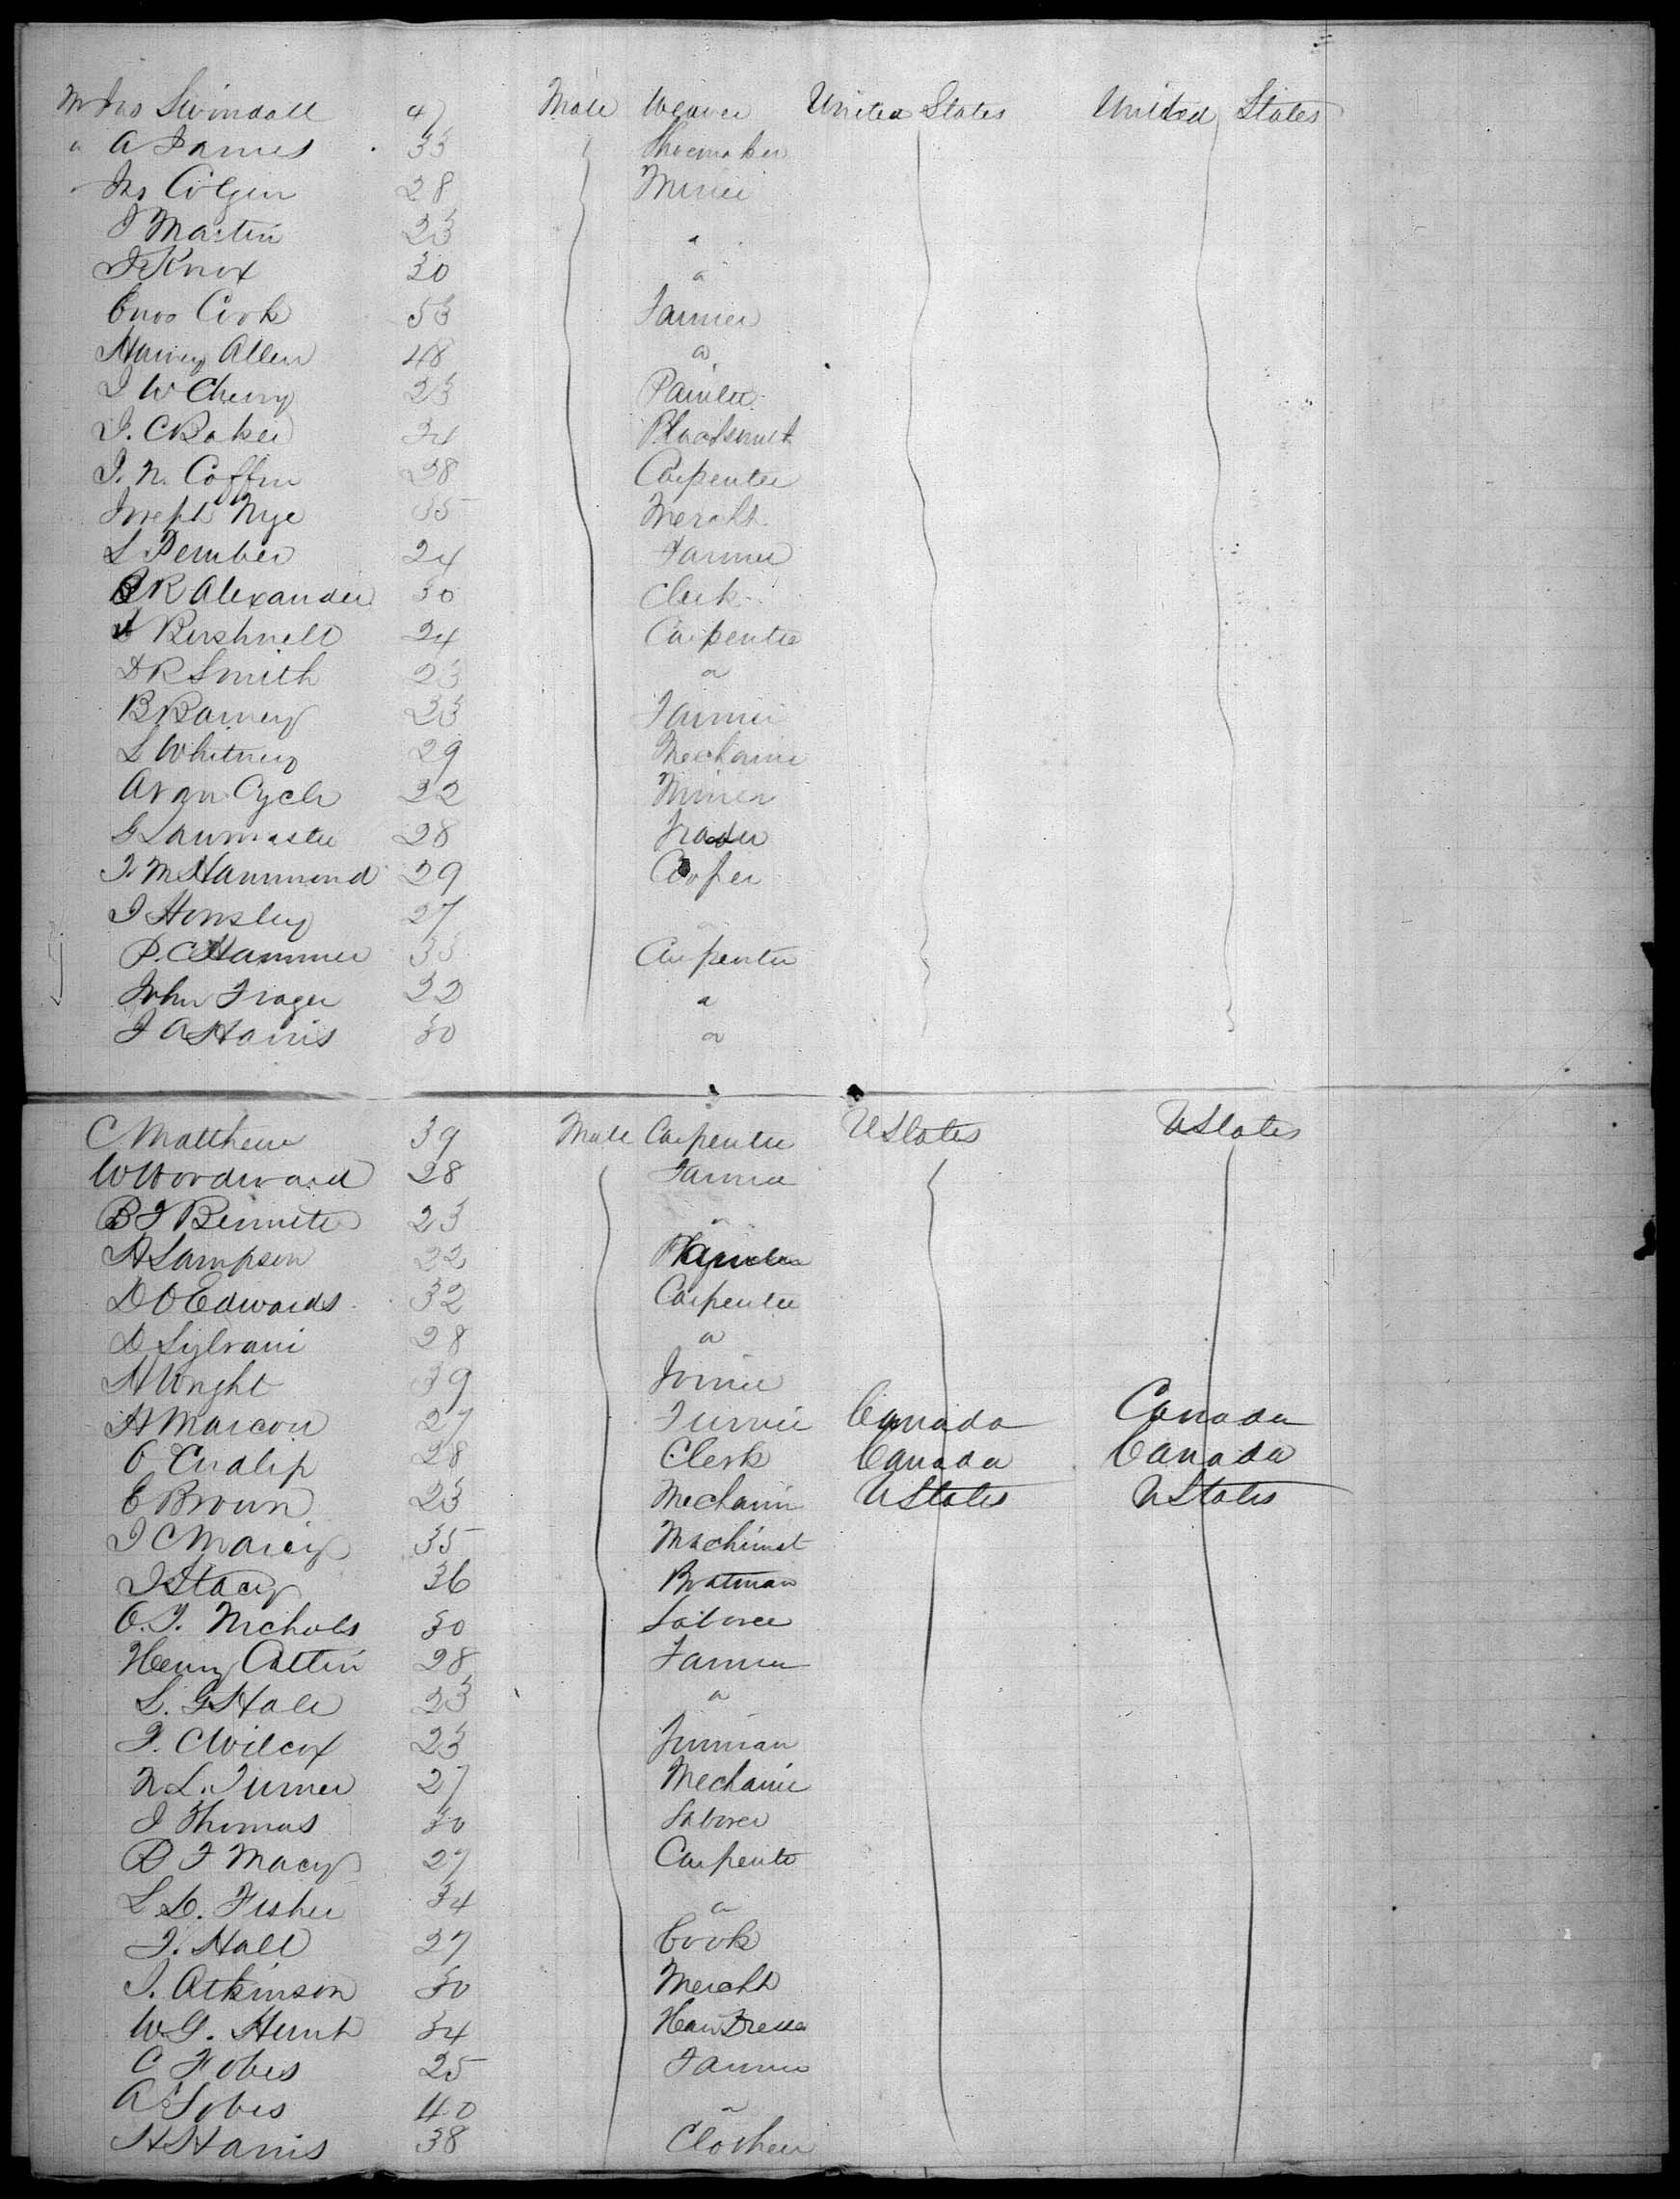 Mr Jno Swindall 47 Male Weaver United States United States
" A James 33 Shoemaker
" Jno Colgin 28 Miner
J Martin 23 "
J Knox 30 "
Enos Cook 53 Farmer
Harvey Allen 48 "
J W Cherry 23 Painter
J. C Baker 34 Blacksmit
J. N. Coffin 28 Carpenter
Joseph Nye 35 Mercht
L Pember 24 Farmer
R Alexander 30 Clerk
Bushnell 24 Carpenter
D R Smith 23 "
B Barney 23 Farmer
L Whitney 29 Mechanic
A Van Cycle 22 Miner
G Laumaster 28 Trader
J. M Hammond 29 Cooper
J Honsley 27 "
P. C Hammer 33 Carpenter
John Frager 22 "
J A Harris 30 "
C Matthew 39 Male Carpenter UStates UStates
W Woodward 28 Farmer
B F Bennett 23 "
H Sampson 22
D O Edwards 32 Carpenter
D Sylvani 28 "
H Wright 39 Joiner
H Marcou 27 Turner Canada Canada
O Cudlip 28 Clerk Canada Canada
E Brown 23 Mechanic UStates UStates
J C Marcy 35 Machinist
J Stacy 36 Boatman
O. F. Nichols 30 Laborer
Henry Cattin 28 Farmer
L. G Hale 23 "
F. C Wilcox 23 Tinman
N L. Turner 27 Mechanic
J Thomas 30 Laborer
B F Macy 27 Carpente
L D. Fisher 34 "
J. Hall 27 Cook
J. Atkinson 30 Mercht
W G. Hunt 34 Hair Dresser
C Fobes 25 Farmer
A Fobes 40 "
H Harris 38 Clothier